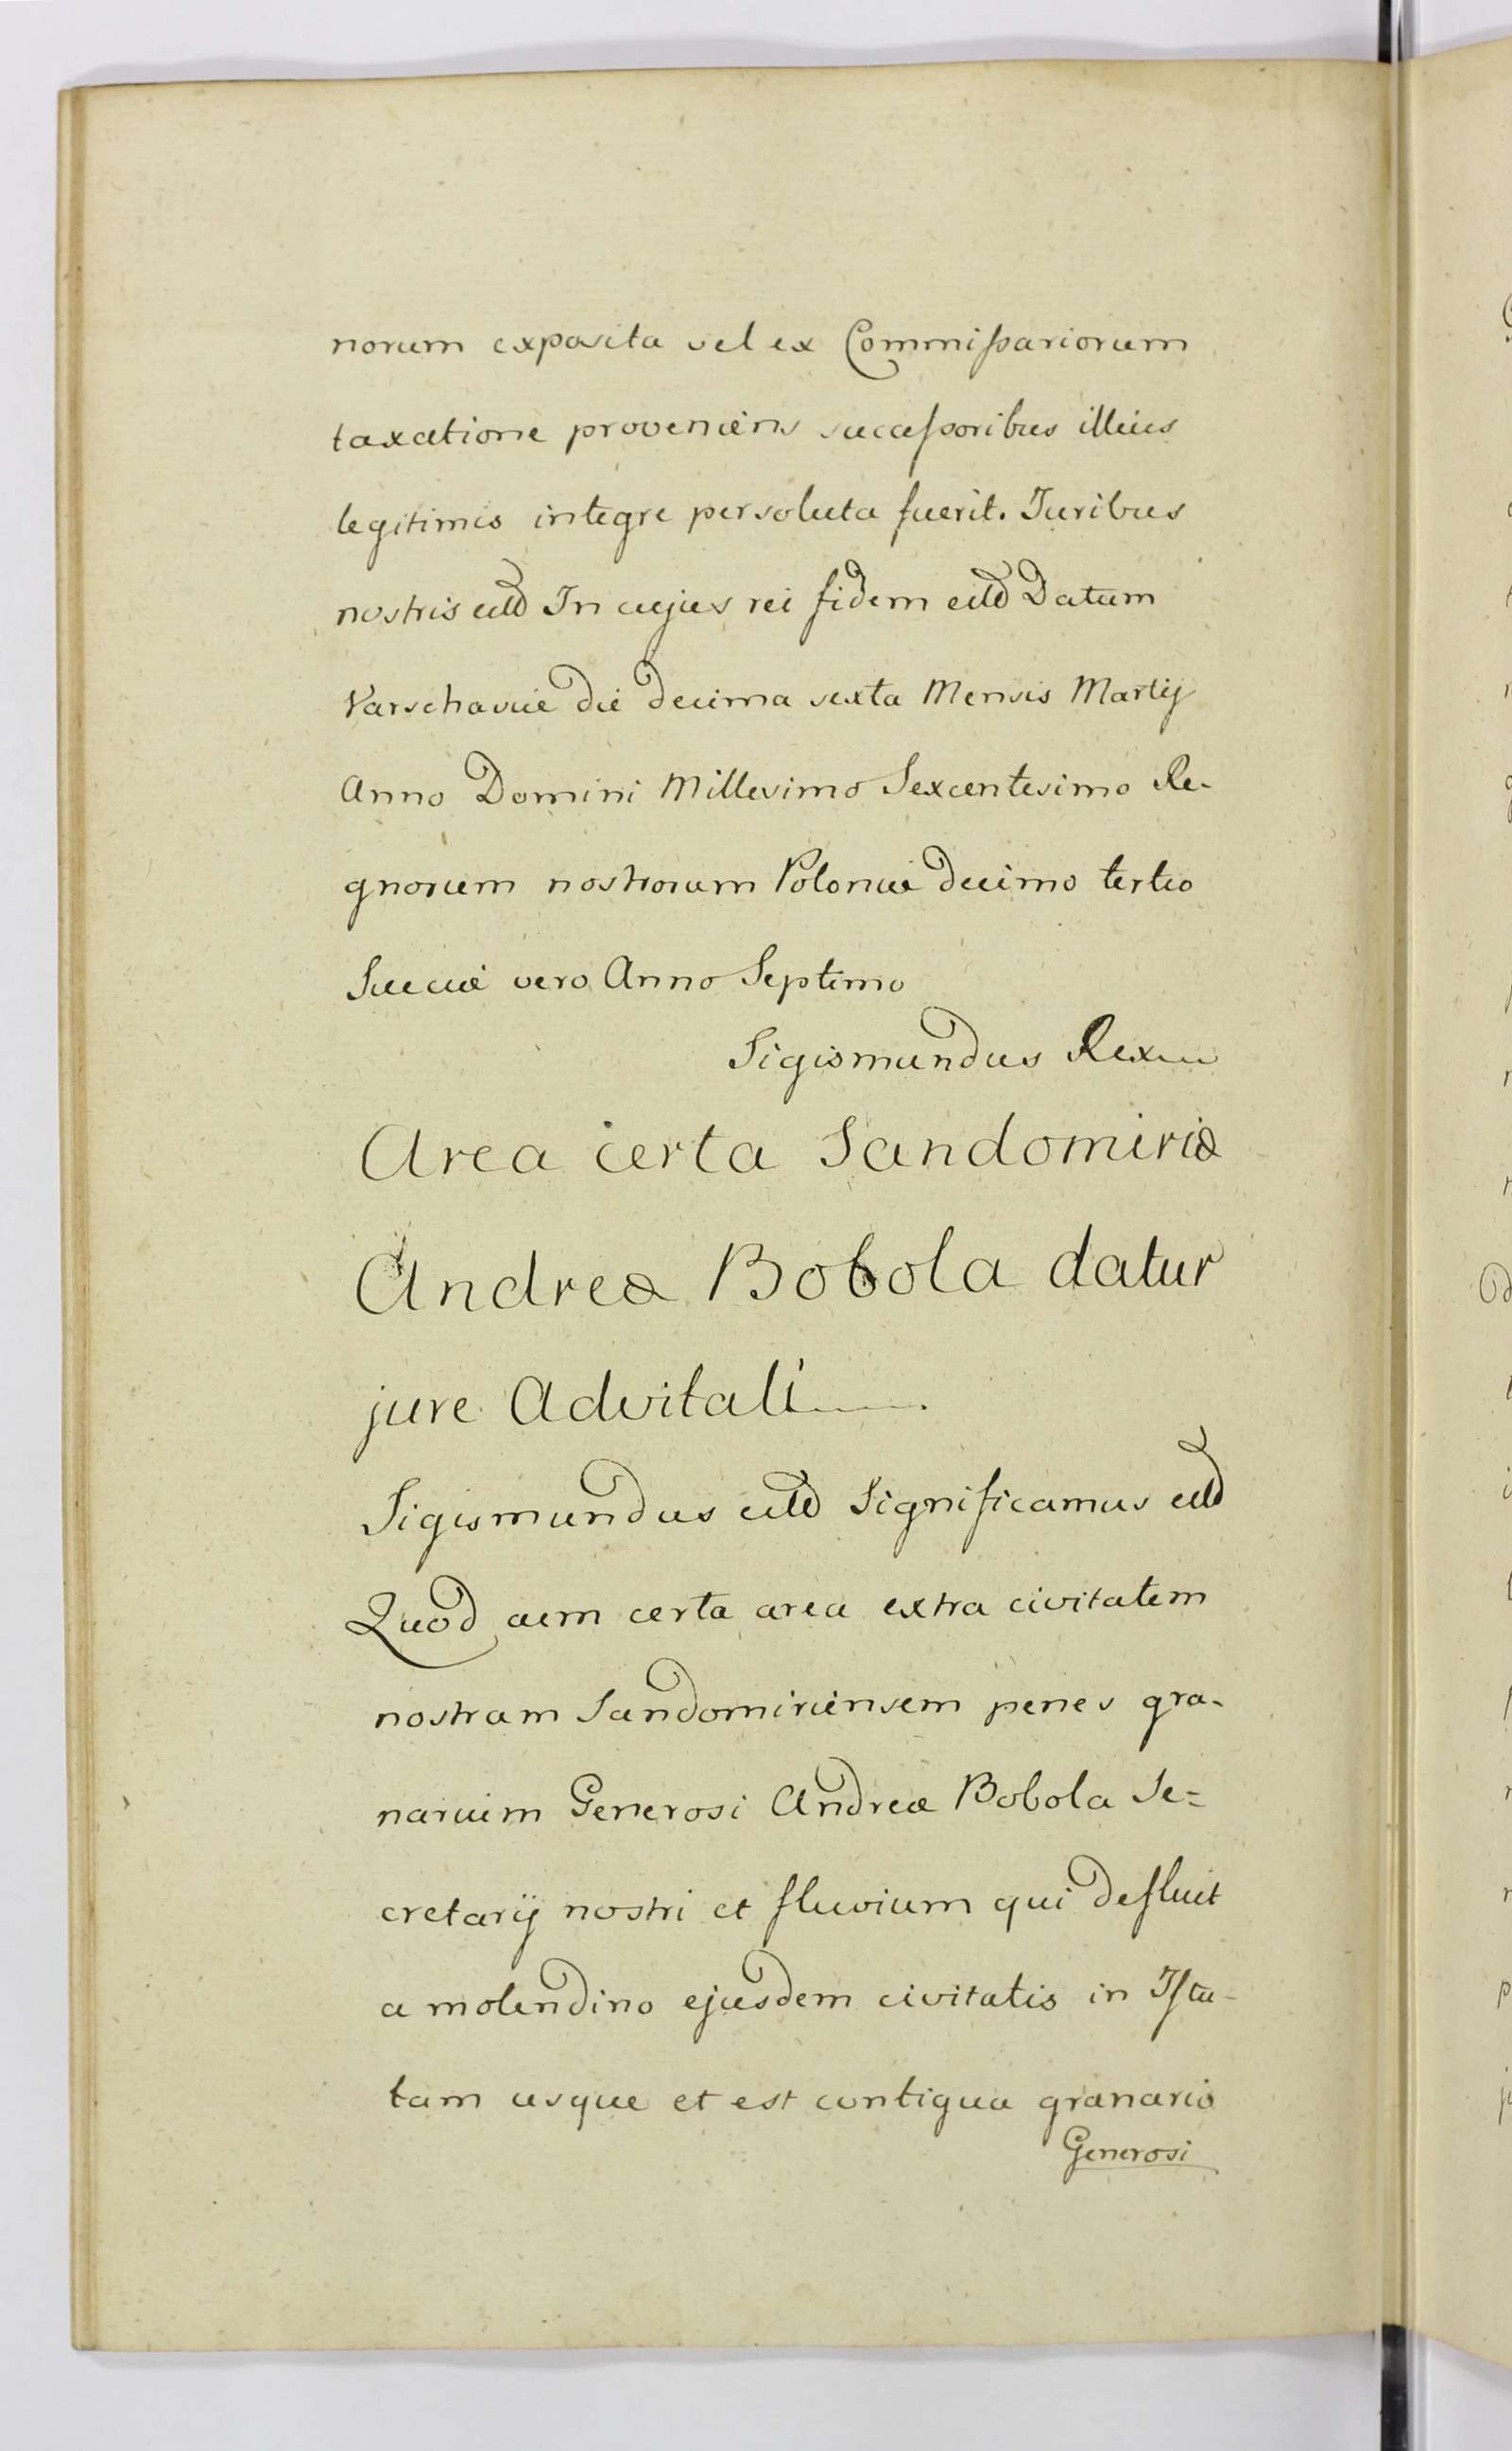 norum exposita vel ex Commissariorum
taxatione proveniens successoribus illius
legitimis integre persoluta fuerit. Juribus
nostris In cujus rei fidem Datum
Varschaviæ die decima sexta Mensis Martij
Anno Domini Millesimo Sexcentesimo Re-
gnorum nostrorum Poloniæ decimo tertio
Sueciæ vero Anno Septimo
Sigismundus Rex
Area certa Sandomiriæ
Andreæ Bobola datur
jure Advitali
Sigismundus Significamus
Quod cum certa area extra civitatem
nostram Sandomiriensem penes gra-
narium Generosi Andreæ Bobola Se=
cretarij nostri et fluvium qui defluit
a molendino ejusdem civitatis in Istu-
tam usque et est contigua granario
Generosi